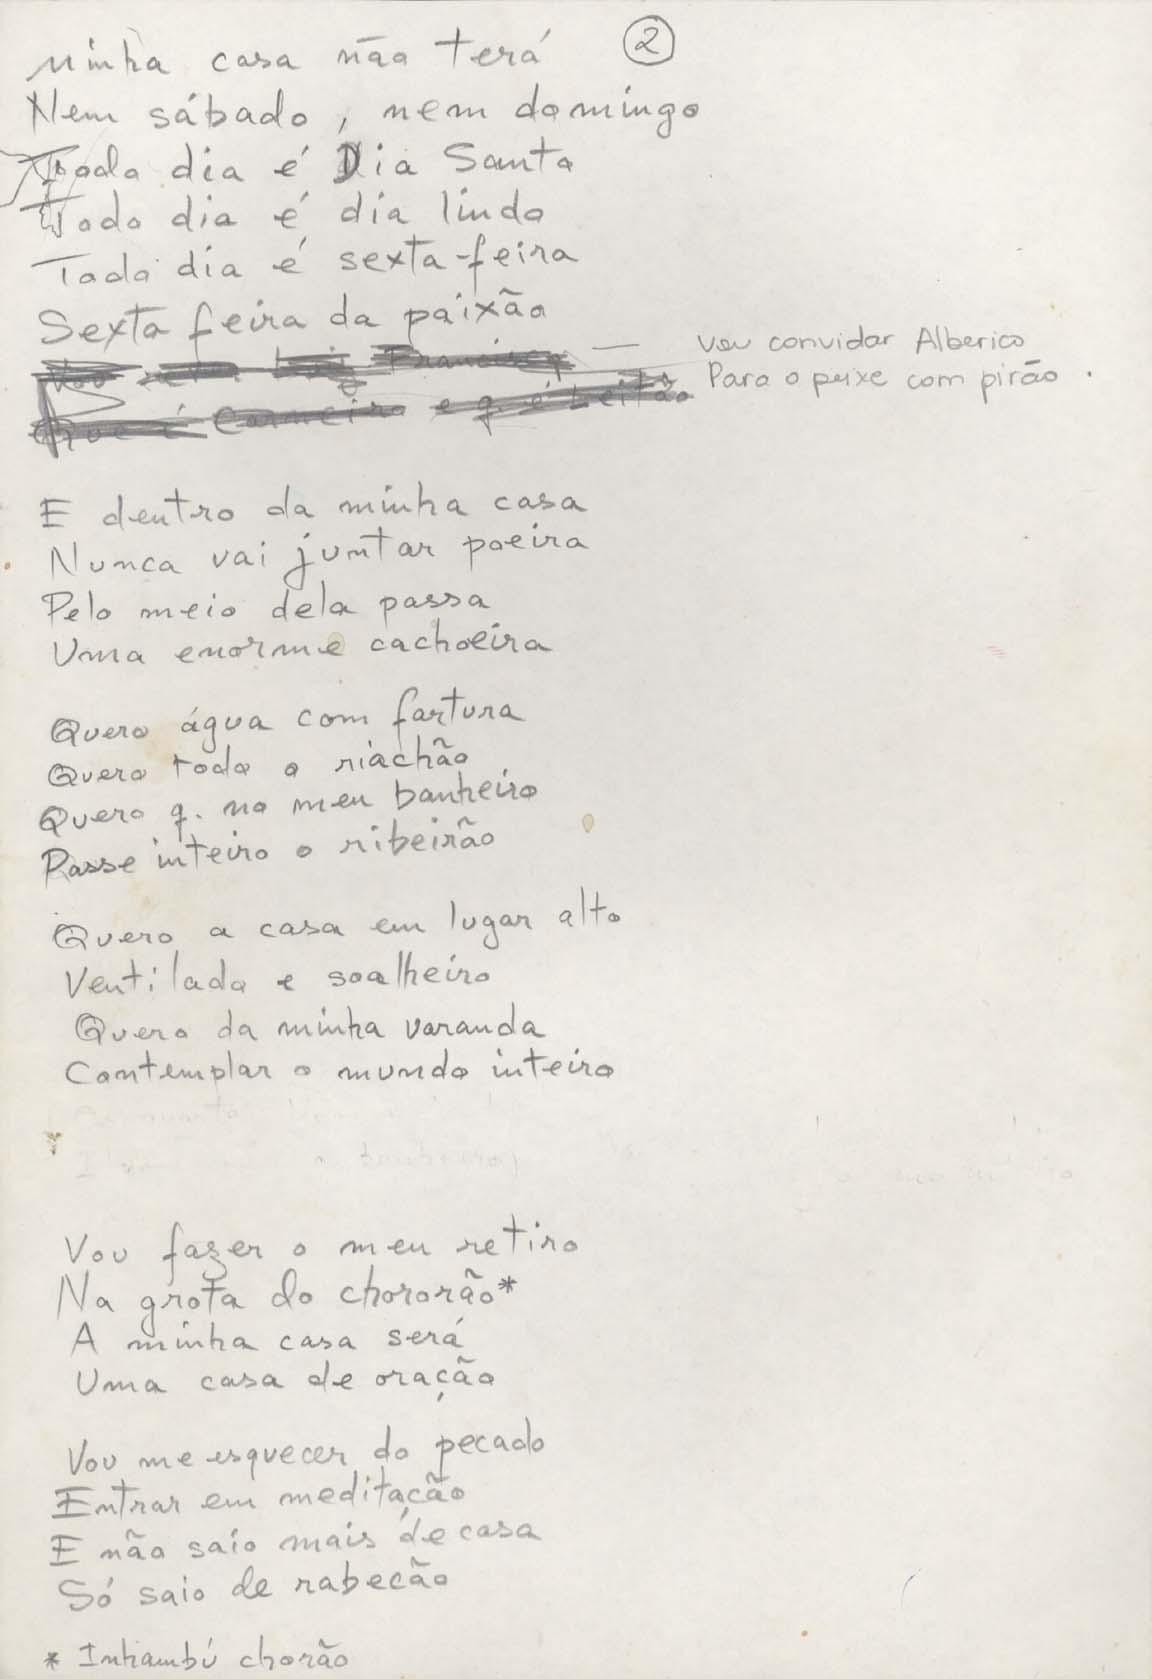 2
Minha casa não terá
Nem sábado, nem domingo
Todo dia é Dia Santo
Todo dia é dia lindo
Todo dia é sexta-feira
Sexta feira da paixão
Vou convidar Alberico
Para o peixe com pirão.
Francisco
Que é Carneiro e q. é Leitão
E dentro da minha casa
Nunca vai juntar poeira
Pelo meio dela passa
Uma enorme cachoeira
Quero água com fartura
Quero todo o riachão
Quero q. no meu banheiro
Passe inteiro o ribeirão
Quero a casa em lugar alto
Ventilado e soalheiro
Quero da minha varanda
Contemplar o mundo inteiro
Vou fazer o meu retiro
Na grota do chororão*
A minha casa será
Uma casa de oração
Vou me esquecer do pecado
Entrar em meditação
E não saio mais de casa
Só saio de rabecão
* Inhambú chorão